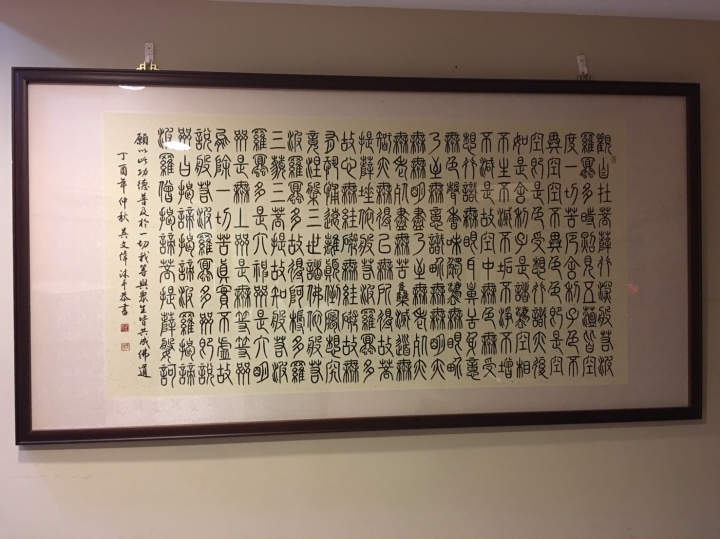 觀自在菩薩行深般若波
羅蜜多時照見五蘊皆空
度一切苦厄舍利子色不
異空空不異色色即是空
空即是色受想行識亦復
如是舍利子是諸法空相
不生不滅不垢不淨不增
不減是故空中無色無受
想行識無眼耳鼻舌身意
無色聲香味觸法無眼界
乃至無意識界無無明亦
無無明盡乃至無老死亦
無老死盡無苦集滅道無
智亦無得以無所得故菩
提薩埵依般若波羅蜜多
故心無罣礙無罣礙故無
有恐怖遠離顛倒夢想究
竟涅槃三世諸佛依般若
波羅蜜多故得阿耨多羅
三藐三菩提故知般若波
羅蜜多是大神咒是大明
咒是無上咒是無等等咒
能除一切苦真實不虛故
說般若波羅蜜多咒即說
咒曰揭諦揭諦波羅揭諦
波羅僧揭諦菩提薩婆訶
願以此功德普及於一切我等與眾生皆共成佛道
丁酉年仲秋吳文偉沐手恭書